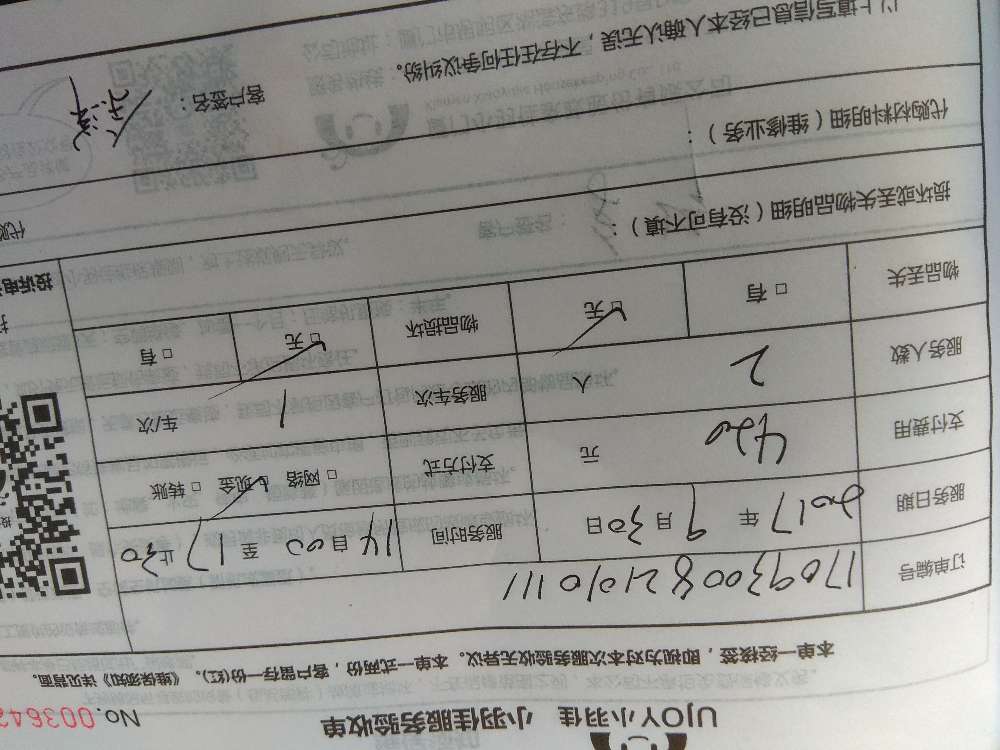 UJOY小羽佳 小羽佳服务验收单 No.003642
本单一经接签，即视为对本次服务验收无异议。本单一式两份，客户留存一份(红)。《维保须知》详见背面。
订单编号 1709300821010111
服务日期 2017年9月30日 服务时间 14自00至17止30
支付费用 420元 支付方式 □网络 □现金 □转账
服务人数 2人 服务车次 1车/次
物品丢失 □有 □无 物品损坏 □有 □无
损坏或丢失物品明细（没有可不填）：
代购材料明细（维修业务）：
以上填写信息已经本人确认无误，不存在任何争议纠纷。
客户签名：
投诉电
代购